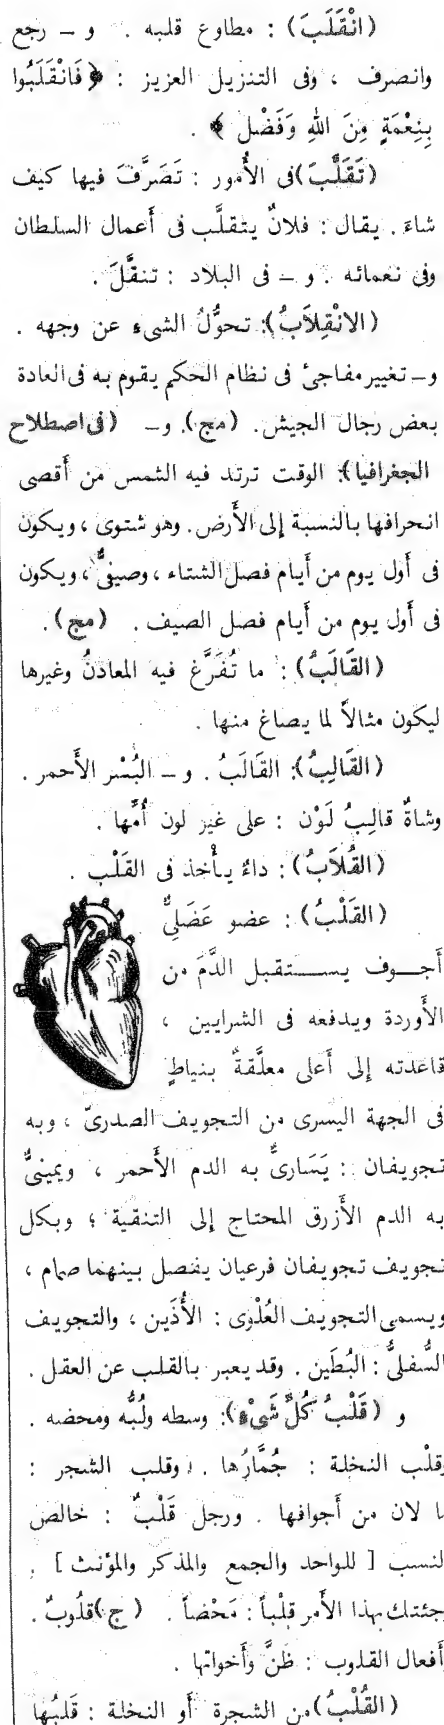 (انْقَلَبَ) : مطاوع قلبه . و ـ رجع
وانصرف ، وفى التنزيل العزيز : ﴿ فَانْقَلَبُوا
بِنِعْمَةٍ مِنَ اللهِ وَفَضْل ﴾ .
(تَقَلَّبَ) فى الأُمور : تَصَرَّفَ فيها كيف
شاءَ . يقال : فلانٌ يتقلَّب فى أَعمال السلطان
وفى نعمائه . و ـ فى البلاد : تنقَّلَ .
(الانْقِلاَبُ) : تحوُّلُ الشىء عن وجهه .
و ـ تغيير مفاجئ فى نظام الحكم يقوم به فى العادة
بعض رجال الجيش . (مج) . و ـ (فى اصطلاح
الجغرافيا) : الوقت ترتد فيه الشمس من أَقصى
انحرافها بالنسبة إلى الأَرض . وهو شتوى ، ويكون
فى أَول يوم من أَيام فصل الشتاء ، وصيفىٌّ ، ويكون
فى أَول يوم من أَيام فصل الصيف . (مج) .
(القَالَبُ) : ما تُفَرَّغ فيه المعادنُ وغيرها
ليكون مثالاً لما يصاغ منها .
(القَالِبُ) : القَالَبُ . و ـ البُسْر الأَحمر .
وشاةٌ قالِبُ لَوْن : على غير لون أُمِّها .
(القُلاَبُ) : داءٌ يأْخذ فى القَلْب .
(القَلْبُ) : عضو عَضَلِىٌّ
أَجوف يستقبل الدَّمَ من
الأَوردة ويدفعه فى الشرايين ،
قاعدته إلى أَعلى معلَّقةٌ بنياطٍ
فى الجهة اليسرى من التجويف الصدرىّ ، وبه
تجويفان : يَسَارىٌّ به الدم الأَحمر ، ويمينىٌّ
به الدم الأَزرق المحتاج إلى التنقية ؛ وبكل
تجويف تجويفان فرعيان يفصل بينهما صمام ،
ويسمى التجويف العُلْوى : الأُذَين ، والتجويف
السُّفلىُّ : البُطَين . وقد يعبر بالقلب عن العقل .
و (قَلْبُ كُلِّ شَىْءٍ) : وسطه ولُبُّه ومحضه .
وقلْب النخلة : جُمَّارُها . وقلب الشجر :
ما لان من أَجوافها . ورجل قَلْبٌ : خالص
النسب [ للواحد والجمع والمذكر والمؤنث ] .
وجئتك بهذا الأَمر قلْباً : مَحْضاً . (ج) قلُوبٌ .
أَفعال القلوب : ظنَّ وأَخواتها .
(القُلْبُ) من الشجرة أَو النخلة : قَلبُها